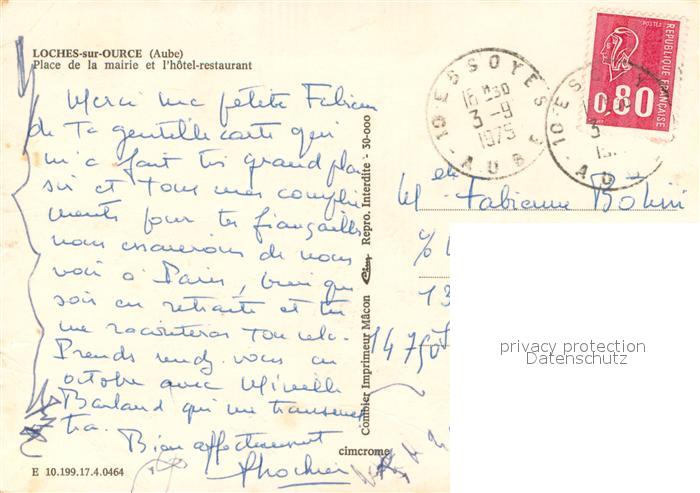 LOCHES-sur-OURCE (Aube)
Place de la mairie et l'hôtel-restaurant
Merci ma petite Fabien
de ta gentille carte qui
m'a fait très grand plai
sir et tous mes compli
ments pour tes fiançailles
nous essaierons de nous
voir à Paris, bien que
sois en retraite et tu
me raconteras tout cela.
Prends rendez vous en
octobre avec Mireille
Barland qui me transmet
tra.
Bien affectueusement
E 10.199.17.4.0464
cimcrome
Combier Imprimeur Mâcon Cim Repro. Interdite - 30-000
10 ESSOYES
16 H 30
3 - 9
1975
AUBE
10 ESSOYES
3
AU
POSTES
REPUBLIQUE FRANÇAISE
0,80
Melle Fabienne
%
13
14 750
privacy protection
Datenschutz